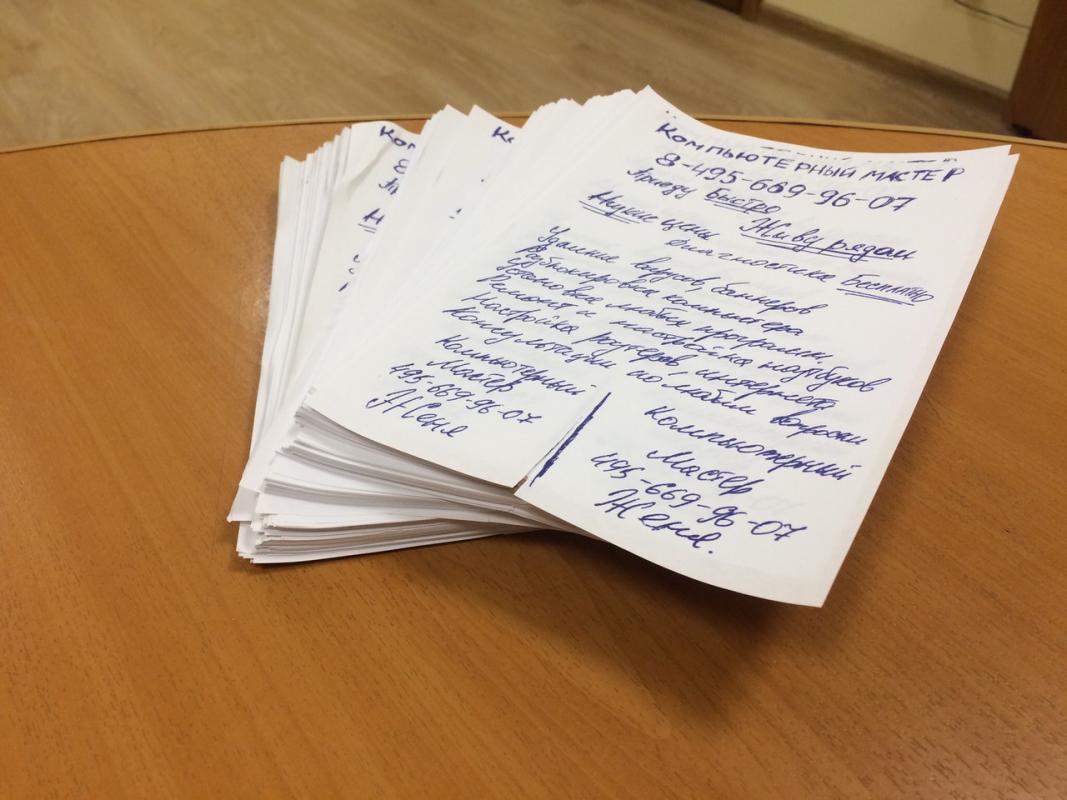 Компьютерный мастер
8-495-669-96-07
Приеду Быстро Живу рядом
Низкие цены Диагностика Бесплатно
Удаление вирусов, баннеров
Разблокировка компьютера
Установка любых программ.
Ремонт и настройка ноутбуков
Настройка роутеров, интернета
Консультации по любым вопросам
Компьютерный
Мастер
495-669-96-07
Женя
Компьютерный
Мастер
495-669-96-07
Женя.